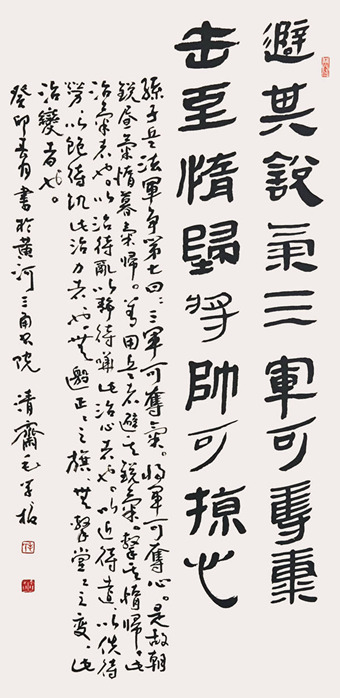 避其銳氣三軍可奪氣
击至惰歸将帥可掠心
孫子兵法軍争第七四：三軍可奪氣。将軍可奪心。是故朝
銳昼氣惰暮氣歸。善用兵者避其銳氣。擊其惰歸此
治氣者也。以治待亂以静待嘩此治心者也。以近待遠以佚待
勞以飽待饥此治力者也。無邀正々之旗無擊堂々之变此
治變者也。
癸卯春月書於黄河三角 院 清齋毛学